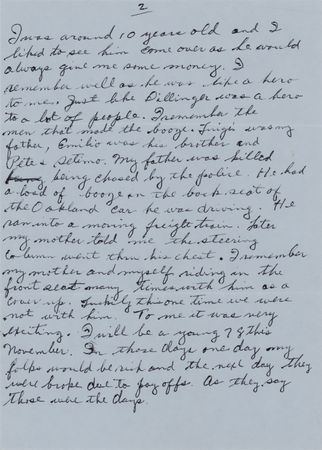 2
I was around 10 years old and I
liked to see him come over as he would
always give me some money. I
remember well as he was like a hero
to me. Just like Dillinger was a hero
to a lot of people. I remember the
men that made the booze. Luigi was my
father, Emilio was his brother and
Pete Setimo. My father was killed
being chased by the police. He had
a load of booze on the back seat of
the Oakland car he was driving. He
ran into a moving freight train. Later
my mother told me the steering
column went thru his chest. I remember
my mother and myself riding in the
front seat many times with him as a
cover up. Luckily this one time we were
not with him. To me it was very
exciting. I will be a young 78 this
November. In those days one day my
folks would be rich and the next day they
were broke due to pay offs. As they say
those were the days.